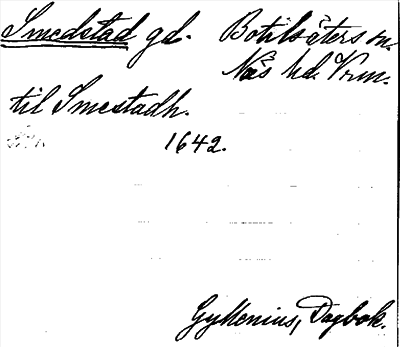 Smedstad gd. Botilsäters sn.
Näs hd. Vrm.
til Smestadh.
1642.
Gyllenius, Dagbok.